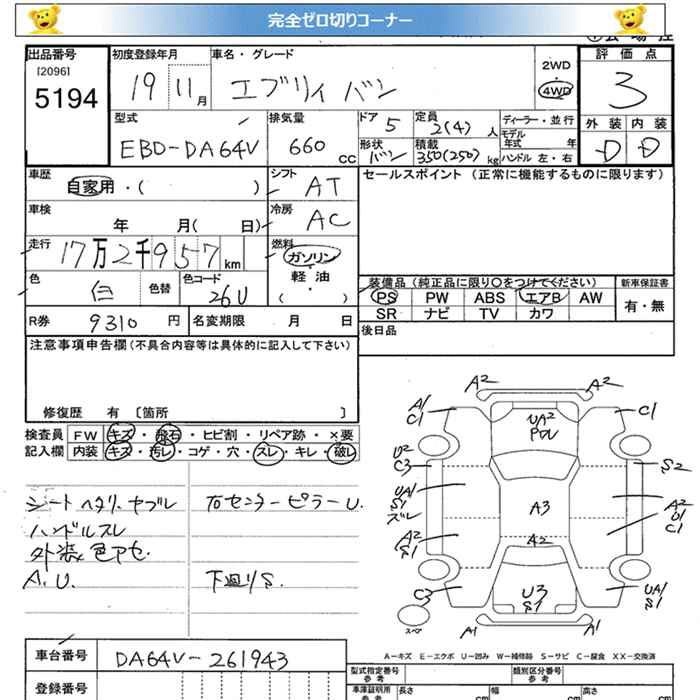 完全ゼロ切りコーナー
出品番号
[2096]
5194
初度登録年月
19 11月
車名・グレード
エブリィ バン
2WD
4WD
評価点
3
外装 内装
D D
型式
EBD-DA64V
排気量
660 cc
ドア 5
形状 バン
定員 2(4) 人
積載 350(250) kg
ディーラー・並行
モデル年式 年
ハンドル 左・右
車歴
自家用・( )
シフト AT
セールスポイント (正常に機能するものに限ります)
車検
年 月( 日)
冷房 AC
走行
17万2千957 km
燃料
ガソリン
軽油
( )
色 白 色替
色コード 26U
装備品(純正品に限り○をつけてください)
PS PW ABS エアB AW
SR ナビ TV カワ
新車保証書
有・無
R券 9310 円
名変期限 月 日
後日品
注意事項申告欄(不具合内容等は具体的に記入して下さい)
修復歴 有 〔箇所 〕
検査員 FW キズ・飛石・ヒビ割・リペア跡・×要
記入欄 内装 キズ・汚レ・コゲ・穴・スレ・キレ・破レ
シートヘタリ、ヤブレ
ハンドルスレ
外装色アセ.
A.U.
右センターピラーU.
下廻りS.
A2 A2
A1 C1
UA2 PDU
C1
U2 C3
S2
UA1 S1 ズレ
A3
A2 U1 C1
A2 S1
A2
C3
U3 S1
UA1 S1
スペ
A1 A1
A-キズ E-エクボ U-凹み W-補修跡 S-サビ C-腐食 XX-交換済
車台番号 DA64V-261943
登録番号
型式指定番号 参考
類別区分番号 参考
車庫証明用 参考
長さ cm
幅 cm
高さ cm